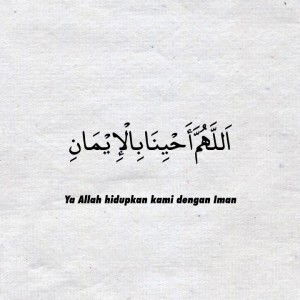 اَللَّهُمَّ أَحْيِنَا بِالْإِيْمَانِ
Ya Allah hidupkan kami dengan Iman